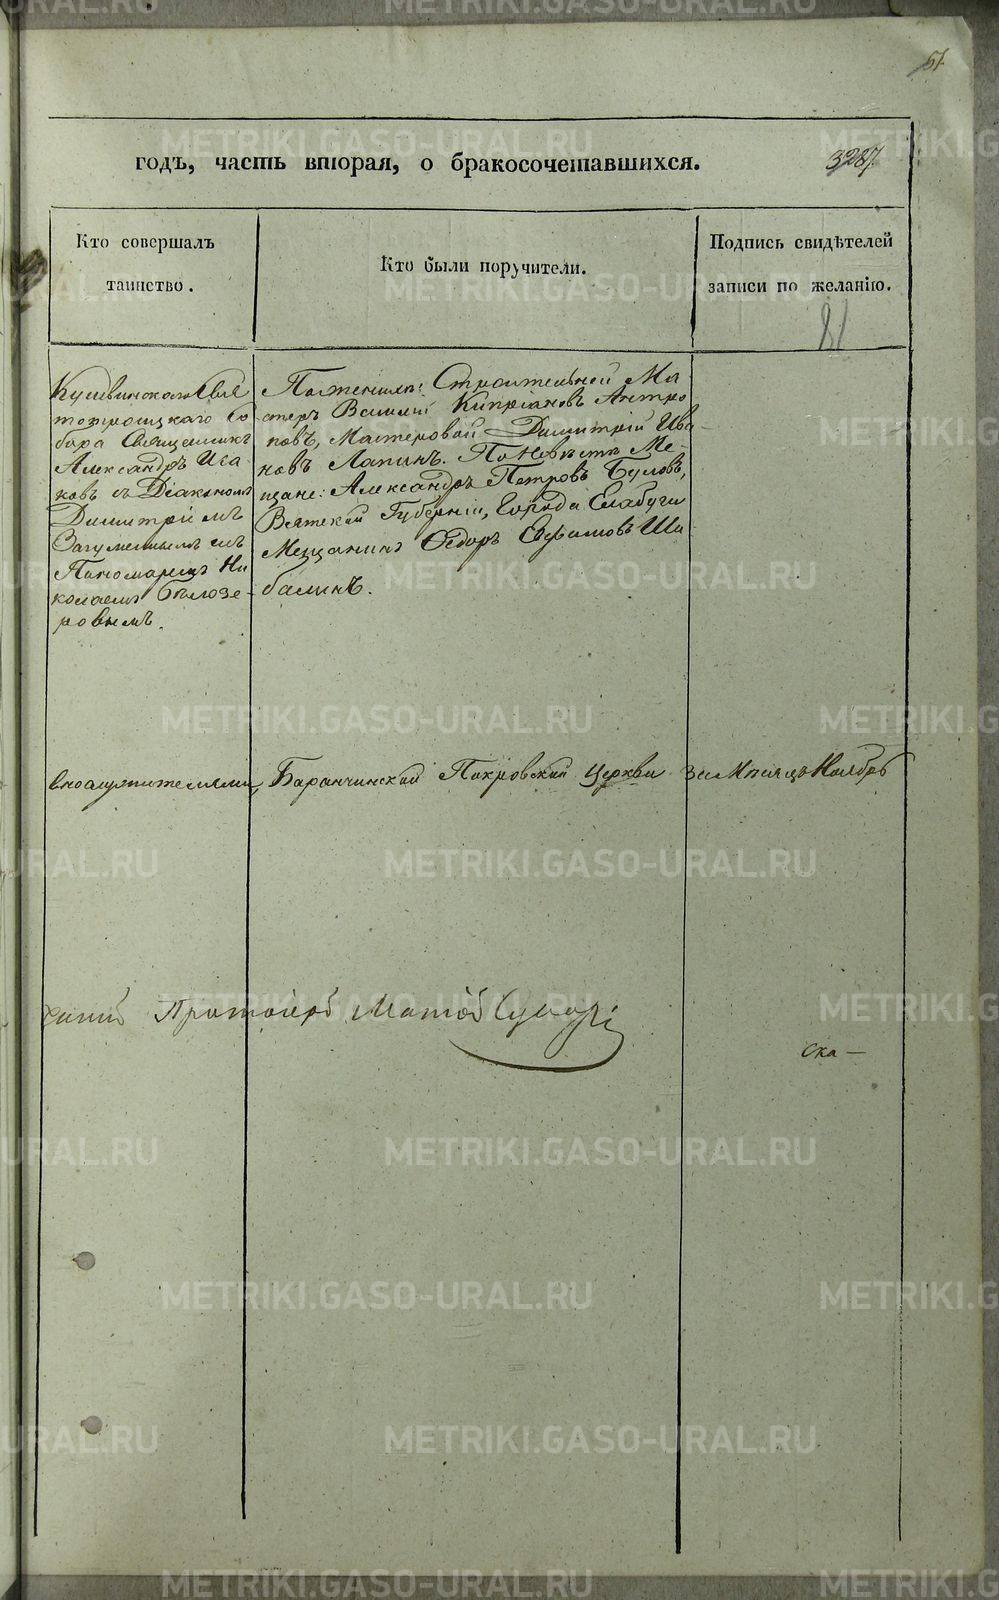 51
годъ, часть вторая, о бракосочетавшихся.
3287
Кто совершалъ
таинство.
Кто были поручители.
Подпись свидѣтелей
записи по желанію.
81
Кушвинскаго Свя
тотроицкаго Со
бора Священникъ
Александръ Иса
ковъ съ Діакономъ
Димитріемъ
Загуменнымъ съ
Пономаремъ Ни
колаемъ Бѣлозе-
ровымъ.
По женихѣ: Строительной Ма
стеръ Василій Кипріановъ Антро
повъ, Мастеровой Димитрій Ива-
новъ Лапинъ. По Невѣстѣ Мѣ
щане: Александръ Петровъ
Вятской Губерніи, Города Елабуги
Мещанинъ Ѳедоръ Ша
балинъ.
внослужителями, Баранчинской Покровской Церкви за Мѣсяцъ Ноябрь
Протоіерей
ска —
METRIKI.GASO-URAL.RU